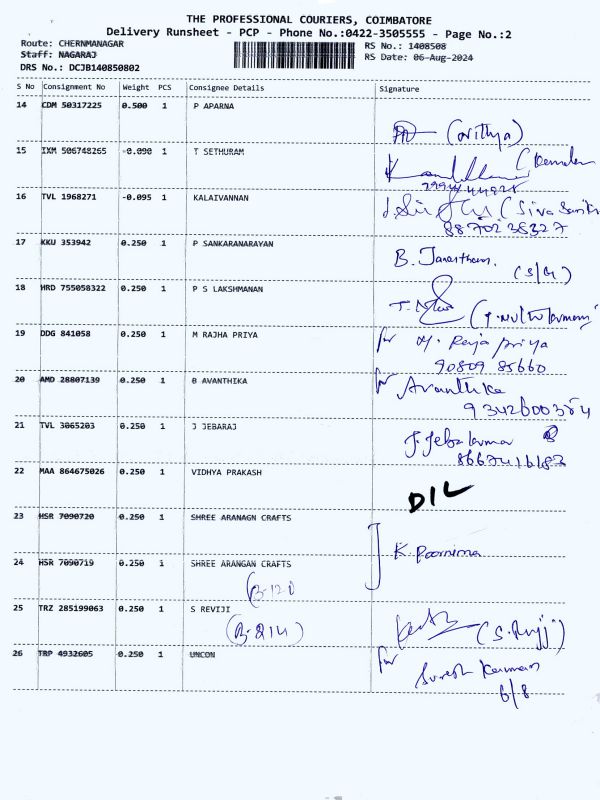 THE PROFESSIONAL COURIERS, COIMBATORE
Delivery Runsheet - PCP - Phone No.:0422-3505555 - Page No.:2
Route: CHERNMANAGAR
RS No.: 1408508
Staff: NAGARAJ
RS Date: 06-Aug-2024
DRS No.: DCJB140850802
S No Consignment No Weight PCS Consignee Details Signature
14 CDM 50317225 0.500 1 P APARNA
(Nithya)
15 IXM 506748265 -0.090 1 T SETHURAM
16 TVL 1968271 -0.095 1 KALAIVANNAN
8870238327
17 KKU 353942 0.250 1 P SANKARANARAYAN
B. Janartham.
18 HRD 755058322 0.250 1 P S LAKSHMANAN
19 DDG 841058 0.250 1 M RAJHA PRIYA
for M. Raja Priya
90809 85660
20 AMD 28807139 0.250 1 B AVANTHIKA
for Avanthika
21 TVL 3065203 0.250 1 J JEBARAJ
22 MAA 864675026 0.250 1 VIDHYA PRAKASH
D/L
23 HSR 7090720 0.250 1 SHREE ARANAGN CRAFTS
K. Poornima
24 HSR 7090719 0.250 1 SHREE ARANGAN CRAFTS
(B-120
25 TRZ 285199063 0.250 1 S REVIJI
(B-214)
26 TRP 4932605 0.250 1 UNCON
for
Suresh Kumar
6/8